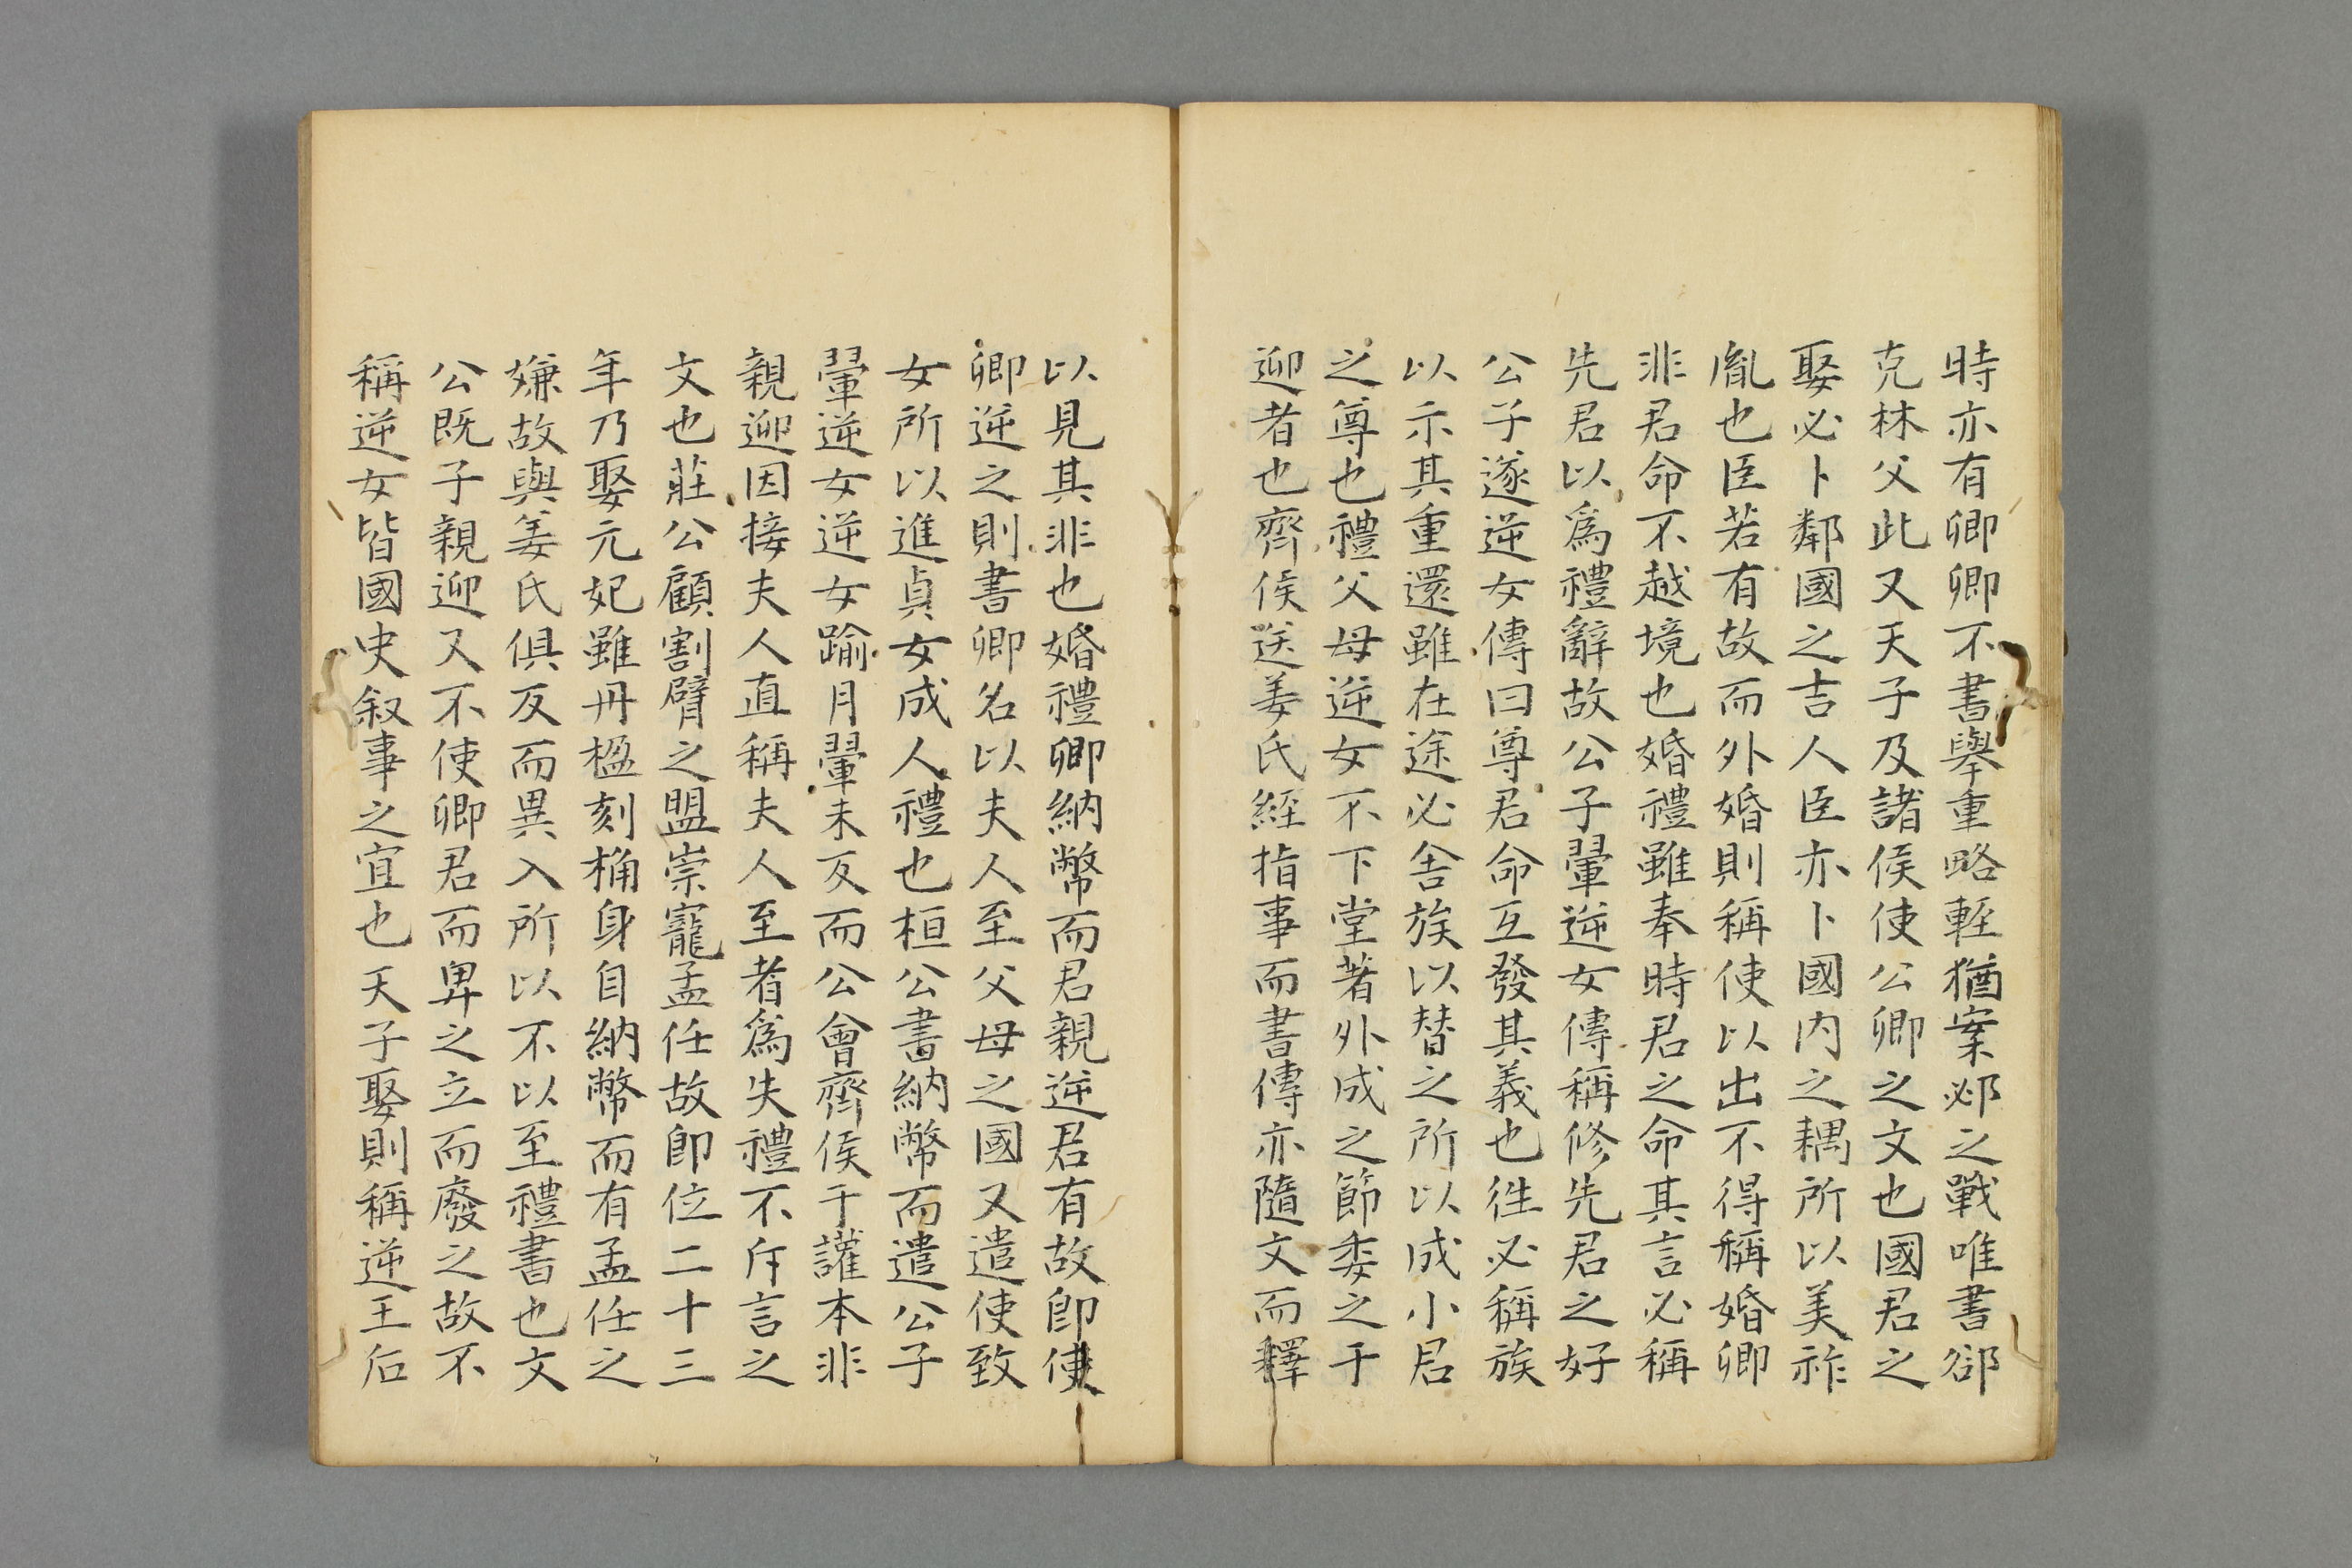 時亦有卿卿不書舉重略輊猶案邲之戰唯書郤
克林父此又天子及諸侯使公卿之文也國君之
娶必卜鄰國之吉人臣亦卜國內之耦所以美祚
胤也臣若有故而外婚則稱使以出不得稱婚卿
非君命不越境也婚禮雖奉時君之命其言必稱
先君以爲禮辭故公子翬逆女傳稱修先君之好
公子遂逆女傳曰尊君命互發其義也徃必稱族
以示其重還雖在途必舍族以替之所以成小君
之尊也禮父母逆女不下堂著外成之節委之于
迎者也齊侯送姜氏經指事而書傳亦隨文而釋
以見其非也婚禮卿納幣而君親逆君有故卽使
卿逆之則書卿名以夫人至父母之國又遣使致
女所以進貞女成人禮也桓公書納幣而遣公子
翬逆女逆女踰月翬未反而公會齊侯于讙本非
親迎因接夫人直稱夫人至者爲失禮不斥言之
文也莊公顧割臂之盟崇寵孟任故卽位二十三
年乃娶元妃雖丹楹刻桷身自納幣而有孟任之
嫌故與姜氏俱反而異入所以不以至禮書也文
公既子親迎又不使卿君而卑之立而廢之故不
稱逆女皆國史叙事之宜也天子娶則稱逆王后